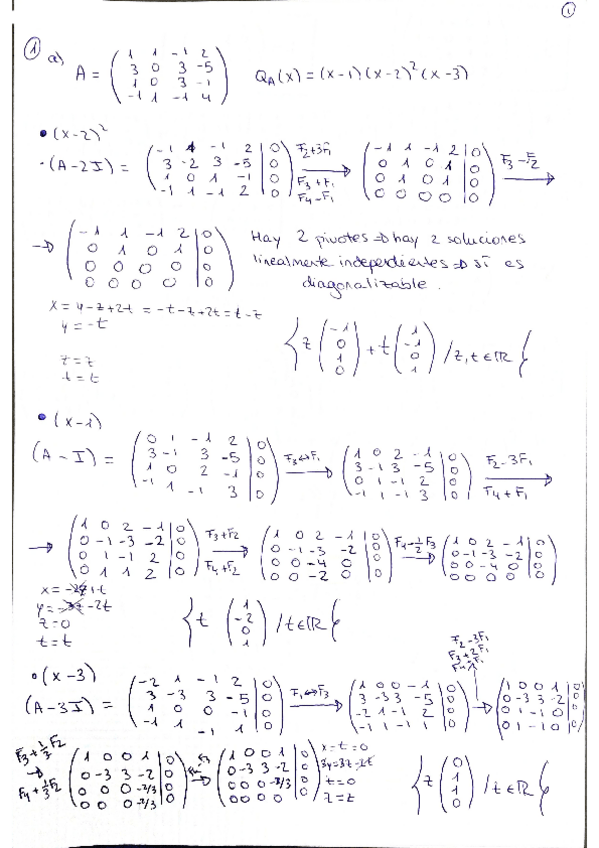 1
① a) A = ( 1 1 -1 2 ; 3 0 3 -5 ; 1 0 3 -1 ; -1 1 -1 4 ) Q_A(x) = (x-1)(x-2)²(x-3)
• (x-2)²
· (A-2I) = ( -1 1 -1 2 | 0 ; 3 -2 3 -5 | 0 ; 1 0 1 -1 | 0 ; -1 1 -1 2 | 0 ) F2+3F1 F3+F1 F4-F1 → ( -1 1 -1 2 | 0 ; 0 1 0 1 | 0 ; 0 1 0 1 | 0 ; 0 0 0 0 | 0 ) F3-F2 →
→ ( -1 1 -1 2 | 0 ; 0 1 0 1 | 0 ; 0 0 0 0 | 0 ; 0 0 0 0 | 0 )
Hay 2 pivotes ⇒ hay 2 soluciones
linealmente independientes ⇒ sí es
diagonalizable.
x = y-z+2t = -t-z+2t = t-z
y = -t
z = z
t = t
{ z ( -1 ; 0 ; 1 ; 0 ) + t ( 1 ; -1 ; 0 ; 1 ) / z, t ∈ ℝ }
• (x-1)
(A-I) = ( 0 1 -1 2 | 0 ; 3 -1 3 -5 | 0 ; 1 0 2 -1 | 0 ; -1 1 -1 3 | 0 ) F3↔F1 → ( 1 0 2 -1 | 0 ; 3 -1 3 -5 | 0 ; 0 1 -1 2 | 0 ; -1 1 -1 3 | 0 ) F2-3F1 F4+F1 →
→ ( 1 0 2 -1 | 0 ; 0 -1 -3 -2 | 0 ; 0 1 -1 2 | 0 ; 0 1 1 2 | 0 ) F3+F2 F4+F2 → ( 1 0 2 -1 | 0 ; 0 -1 -3 -2 | 0 ; 0 0 -4 0 | 0 ; 0 0 -2 0 | 0 ) F4-½F3 → ( 1 0 2 -1 | 0 ; 0 -1 -3 -2 | 0 ; 0 0 -4 0 | 0 ; 0 0 0 0 | 0 )
x = -2z+t
y = -3z-2t
z = 0
t = t
{ t ( 1 ; -2 ; 0 ; 1 ) / t ∈ ℝ }
• (x-3)
(A-3I) = ( -2 1 -1 2 | 0 ; 3 -3 3 -5 | 0 ; 1 0 0 -1 | 0 ; -1 1 -1 1 | 0 ) F1↔F3 → ( 1 0 0 -1 | 0 ; 3 -3 3 -5 | 0 ; -2 1 -1 2 | 0 ; -1 1 -1 1 | 0 ) F2-3F1 F3+2F1 → ( 1 0 0 1 | 0 ; 0 -3 3 -2 | 0 ; 0 1 -1 0 | 0 ; 0 1 -1 0 | 0 )
F3+⅓F2 F4+⅓F2 → ( 1 0 0 1 | 0 ; 0 -3 3 -2 | 0 ; 0 0 0 -2/3 | 0 ; 0 0 0 -2/3 | 0 ) F4-F3 → ( 1 0 0 1 | 0 ; 0 -3 3 -2 | 0 ; 0 0 0 -2/3 | 0 ; 0 0 0 0 | 0 )
x = -t = 0
3y = 3z-2t
t = 0
z = z
{ z ( 0 ; 1 ; 1 ; 0 ) / t ∈ ℝ }